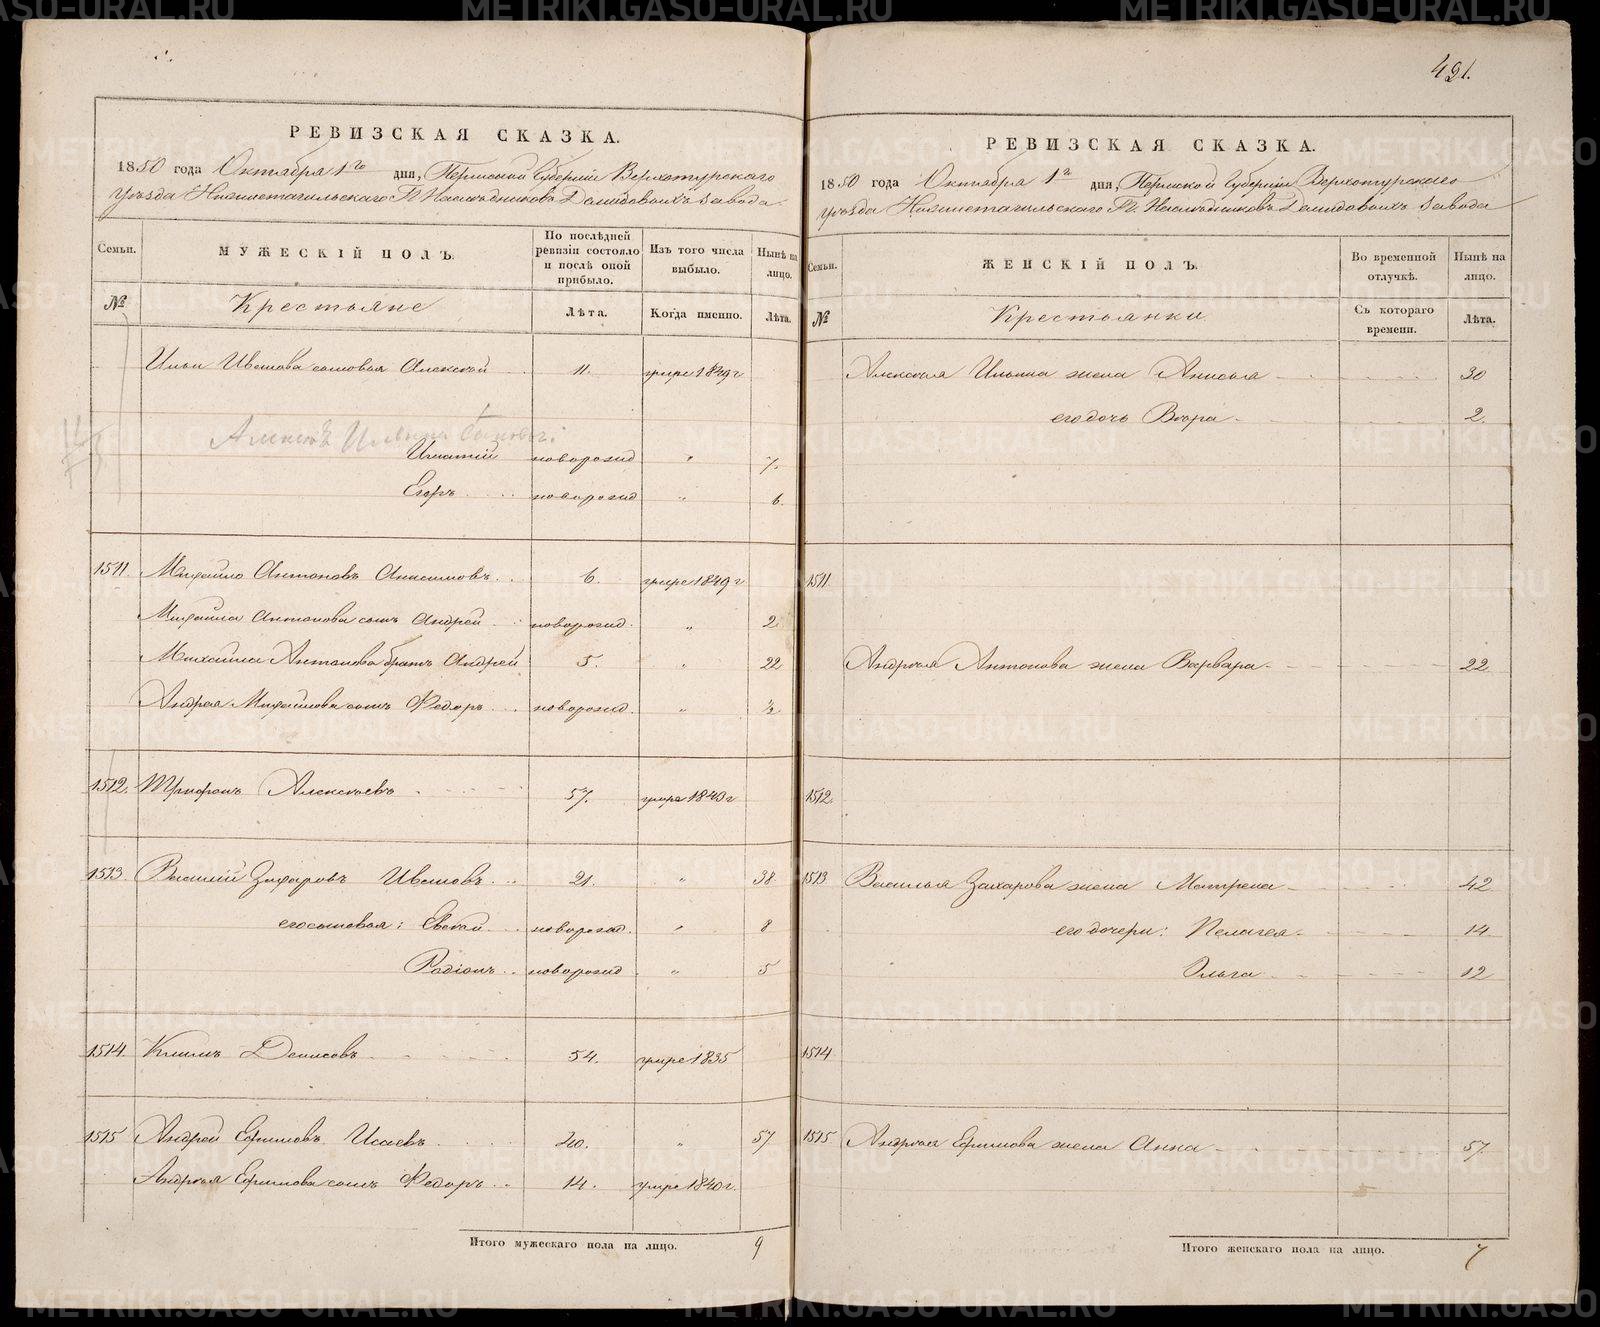 421.
РЕВИЗСКАЯ СКАЗКА.
1850 года Октября 1го дня, Пермской Губернiи Верхотурскаго
Уѣзда Нижнетагильскаго Гг. Наслѣдниковъ Демидовыхъ завода
Семьи.
МУЖЕСКІЙ ПОЛЪ.
По послѣдней ревизіи состояло и послѣ оной прибыло.
Изъ того числа выбыло.
Нынѣ на лицо.
№
Крестьяне
Лѣта.
Когда именно.
Лѣта.
Ильи Иванова сыновья Алексѣй 11. умре 1849 г
Алексѣя Ильина сыновья:
Игнатій новорожд " 7.
Егоръ новорожд " 6.
1511 Михайло Антоновъ Анисимовъ 6. умре 1849 г
Михайла Антонова сынъ Андрей новорожд. " 2.
Михайла Антонова братъ Андрей 5. " 22
Андрея Михайлова сынъ Федоръ новорожд. " ½
1512. Трифонъ Алексѣевъ 57. умре 1843 г
1513. Василий Захаровъ Ивановъ 21. " 38
его сыновья: Евсѣй новорожд. " 8
Родіонъ новорожд " 5
1514. Климъ Денисовъ 54. умре 1835
1515 Андрей Ефимовъ Исаевъ 40. " 57
Андрея Ефимова сынъ Федоръ 14. умре 1840 г.
Итого мужескаго пола на лицо. 9
РЕВИЗСКАЯ СКАЗКА.
1850 года Октября 1го дня, Пермской Губернiи Верхотурскаго
Уѣзда Нижнетагильскаго Гг. Наслѣдниковъ Демидовыхъ завода
Семьи.
ЖЕНСКІЙ ПОЛЪ.
Во временной отлучкѣ.
Нынѣ на лицо.
№
Крестьянки
Съ котораго времени.
Лѣта.
Алексѣя Ильина жена Анисья 30
его дочь Вѣра 2.
1511.
Андрея Антонова жена Варвара 22
1512.
1513. Василья Захарова жена Матрена 42
его дочери: Пелагея 14
Ольга 12
1514
1515 Андрея Ефимова жена Анна 57.
Итого женскаго пола на лицо. 7
METRIKI.GASO-URAL.RU